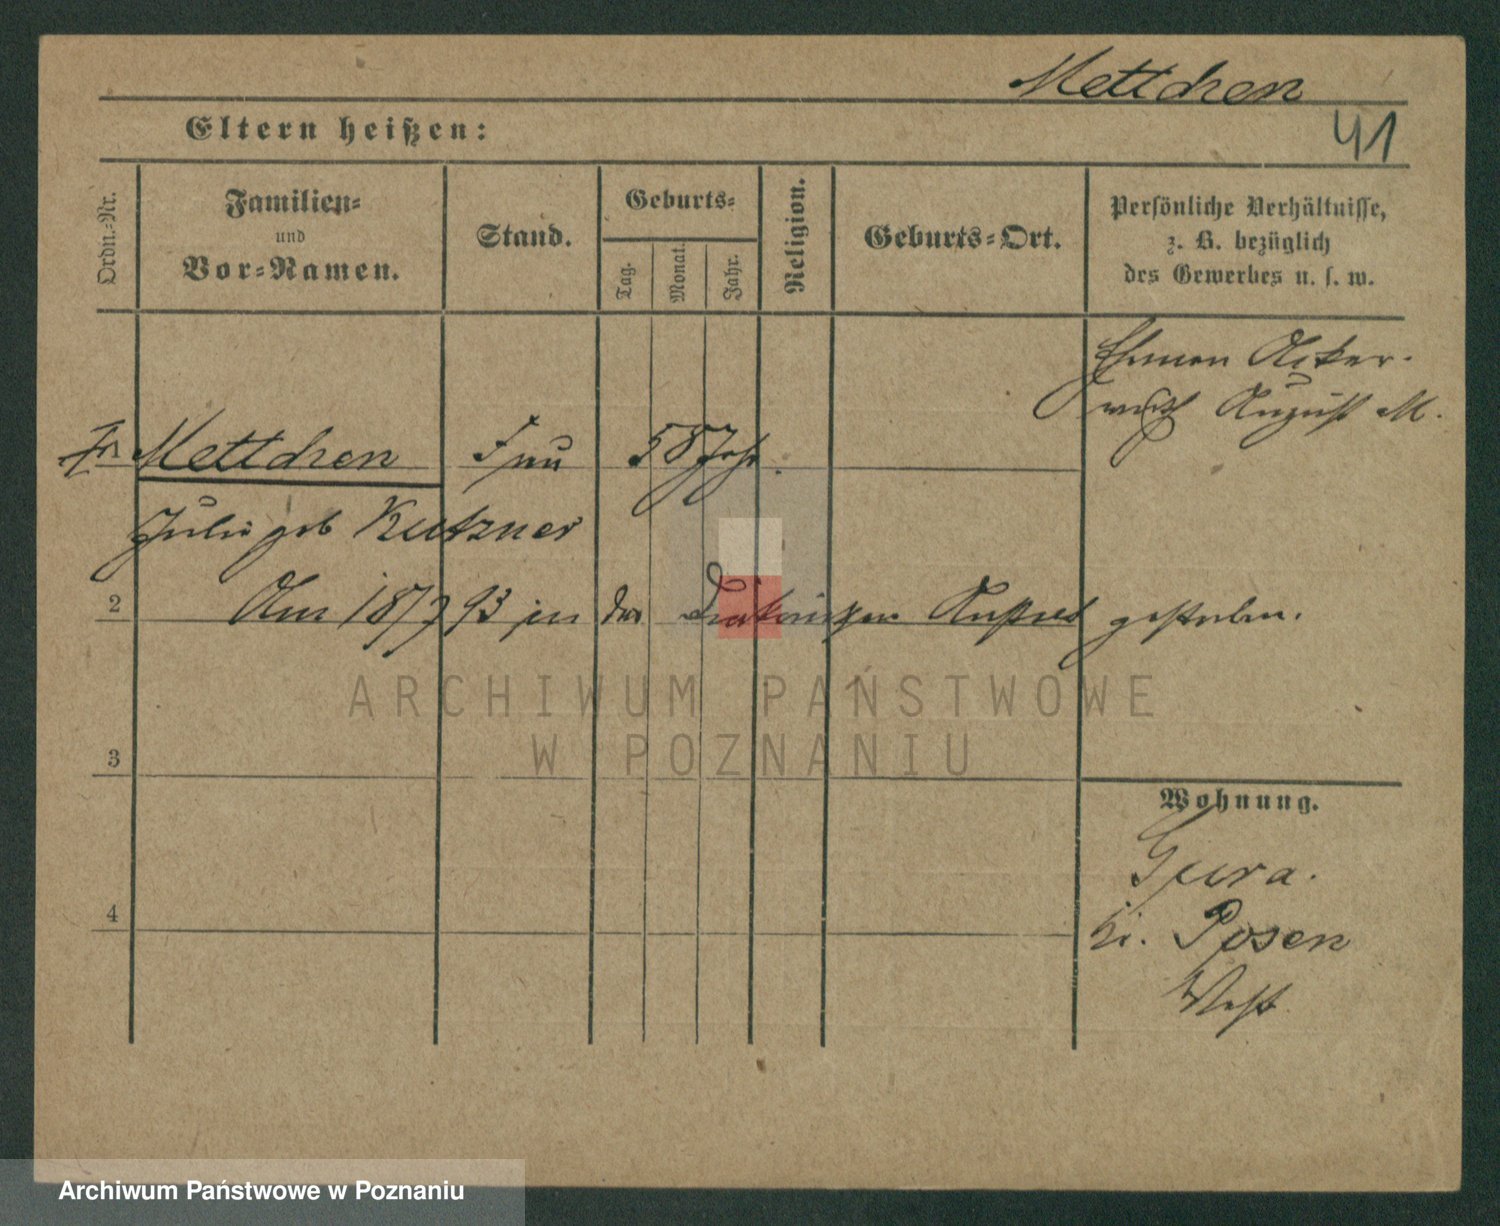 Mettchen
41
Eltern heißen:
Ordn.-Nr.
Familien-
und
Vor-Namen.
Stand.
Geburts-
Tag.
Monat.
Jahr.
Religion.
Geburts-Ort.
Persönliche Verhältnisse,
z. B. bezüglich
des Gewerbes u. s. w.
Acker-
wirth August M.
Fr. Mettchen Frau 58 Jahr.
Julie geb Kutzner
2 Am 18/7 93 in der Anstalt gestorben.
ARCHIWUM PAŃSTWOWE
W POZNANIU
3
Wohnung.
Gura.
4
Kr. Posen
West
Archiwum Państwowe w Poznaniu